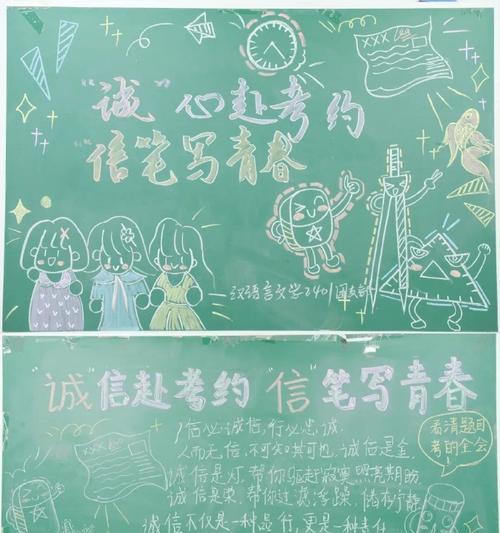 XXX
"诚"心赴考约
"信"笔写青春
汉语言文学2401团支部
"诚"信赴考约 "信"笔写青春
看清题目
考的全会
言必诚信,行必忠诚
人而无信,不可知其可也,诚信是金
诚信是灯,帮你驱赶寂寞照亮期盼
诚信是泉,帮你过滤浮躁,储存宁静
诚信不仅是一种品行,更是一种责任